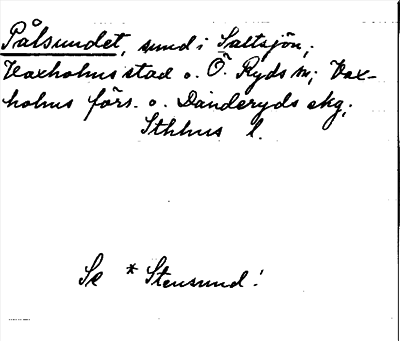 Pålsundet, sund i Saltsjön;
Vaxholms stad o. Ö. Ryds sn; Vax-
holms förs. o. Danderyds skg;
Sthlms l.
Se * Stensund!